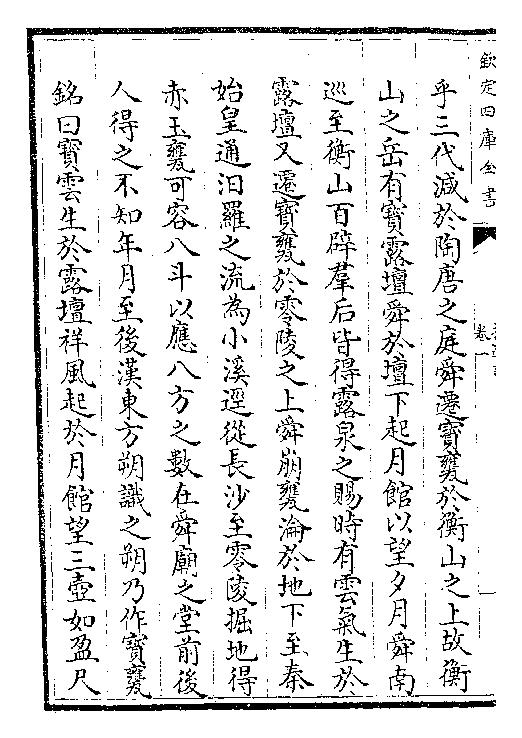 欽定四庫全書
卷一
乎三代減於陶唐之庭舜遷寳甕於衡山之上故衡
山之岳有寳露壇舜於壇下起月館以望夕月舜南
巡至衡山百辟羣后皆得露泉之賜時有雲氣生於
露壇又遷寳甕於零陵之上舜崩甕淪於地下至秦
始皇通汨羅之流為小溪逕從長沙至零陵掘地得
赤玉甕可容八斗以應八方之數在舜廟之堂前後
人得之不知年月至後漢東方朔識之朔乃作寳甕
銘曰寳雲生於露壇祥風起於月館望三壺如盈尺